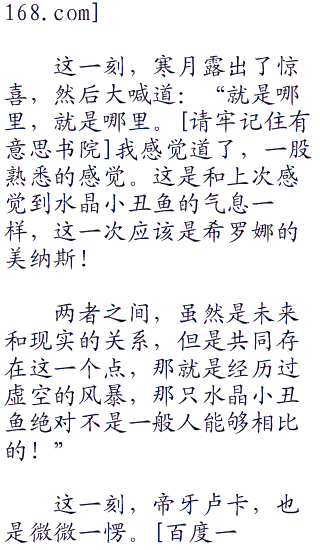 168.com]
这一刻，寒月露出了惊
喜，然后大喊道：“就是哪
里，就是哪里。[请牢记住有
意思书院]我感觉道了，一股
熟悉的感觉。这是和上次感
觉到水晶小丑鱼的气息一
样，这一次应该是希罗娜的
美纳斯！
两者之间，虽然是未来
和现实的关系，但是共同存
在这一个点，那就是经历过
虚空的风暴，那只水晶小丑
鱼绝对不是一般人能够相比
的！”
这一刻，帝牙卢卡，也
是微微一愣。[百度一